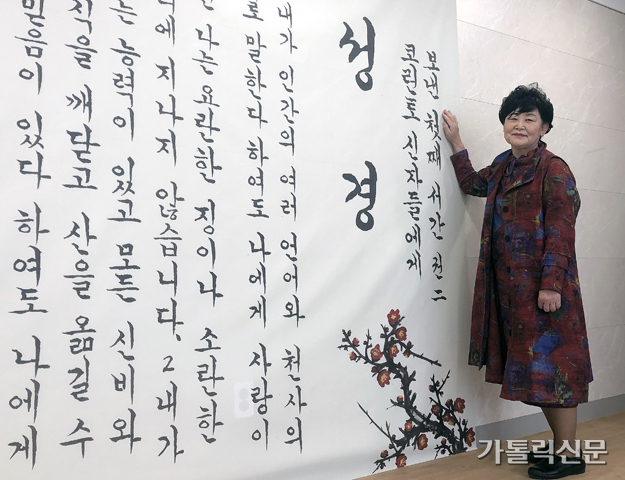 코린토 신자들에게
보낸 첫째 서간
성경
내가 인간의 여러 언어와 천사의
로 말한다 하여도 나에게 사랑이
나는 요란한 징이나 소란한
에 지나지 않습니다. 2 내가
는 능력이 있고 모든 신비와
식을 깨닫고 산을 옮길 수
믿음이 있다 하여도 나에게
가톨릭신문